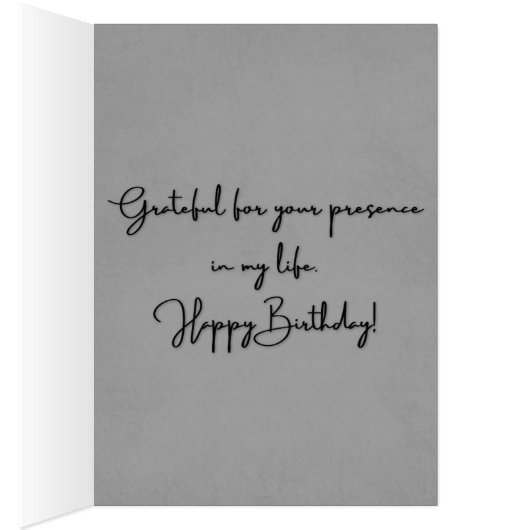 Grateful for your presence
in my life.
Happy Birthday!